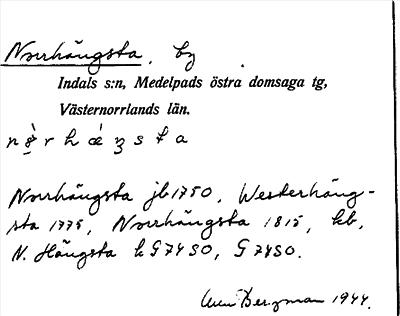 Norrhängsta, by
Indals s:n, Medelpads östra domsaga tg,
Västernorrlands län.
Norrhängsta jb 1750, Westerhäng-
sta 1775, Norrhängsta 1815, kb,
N. Hängsta k G7450, G7450.
Bergman 1944.